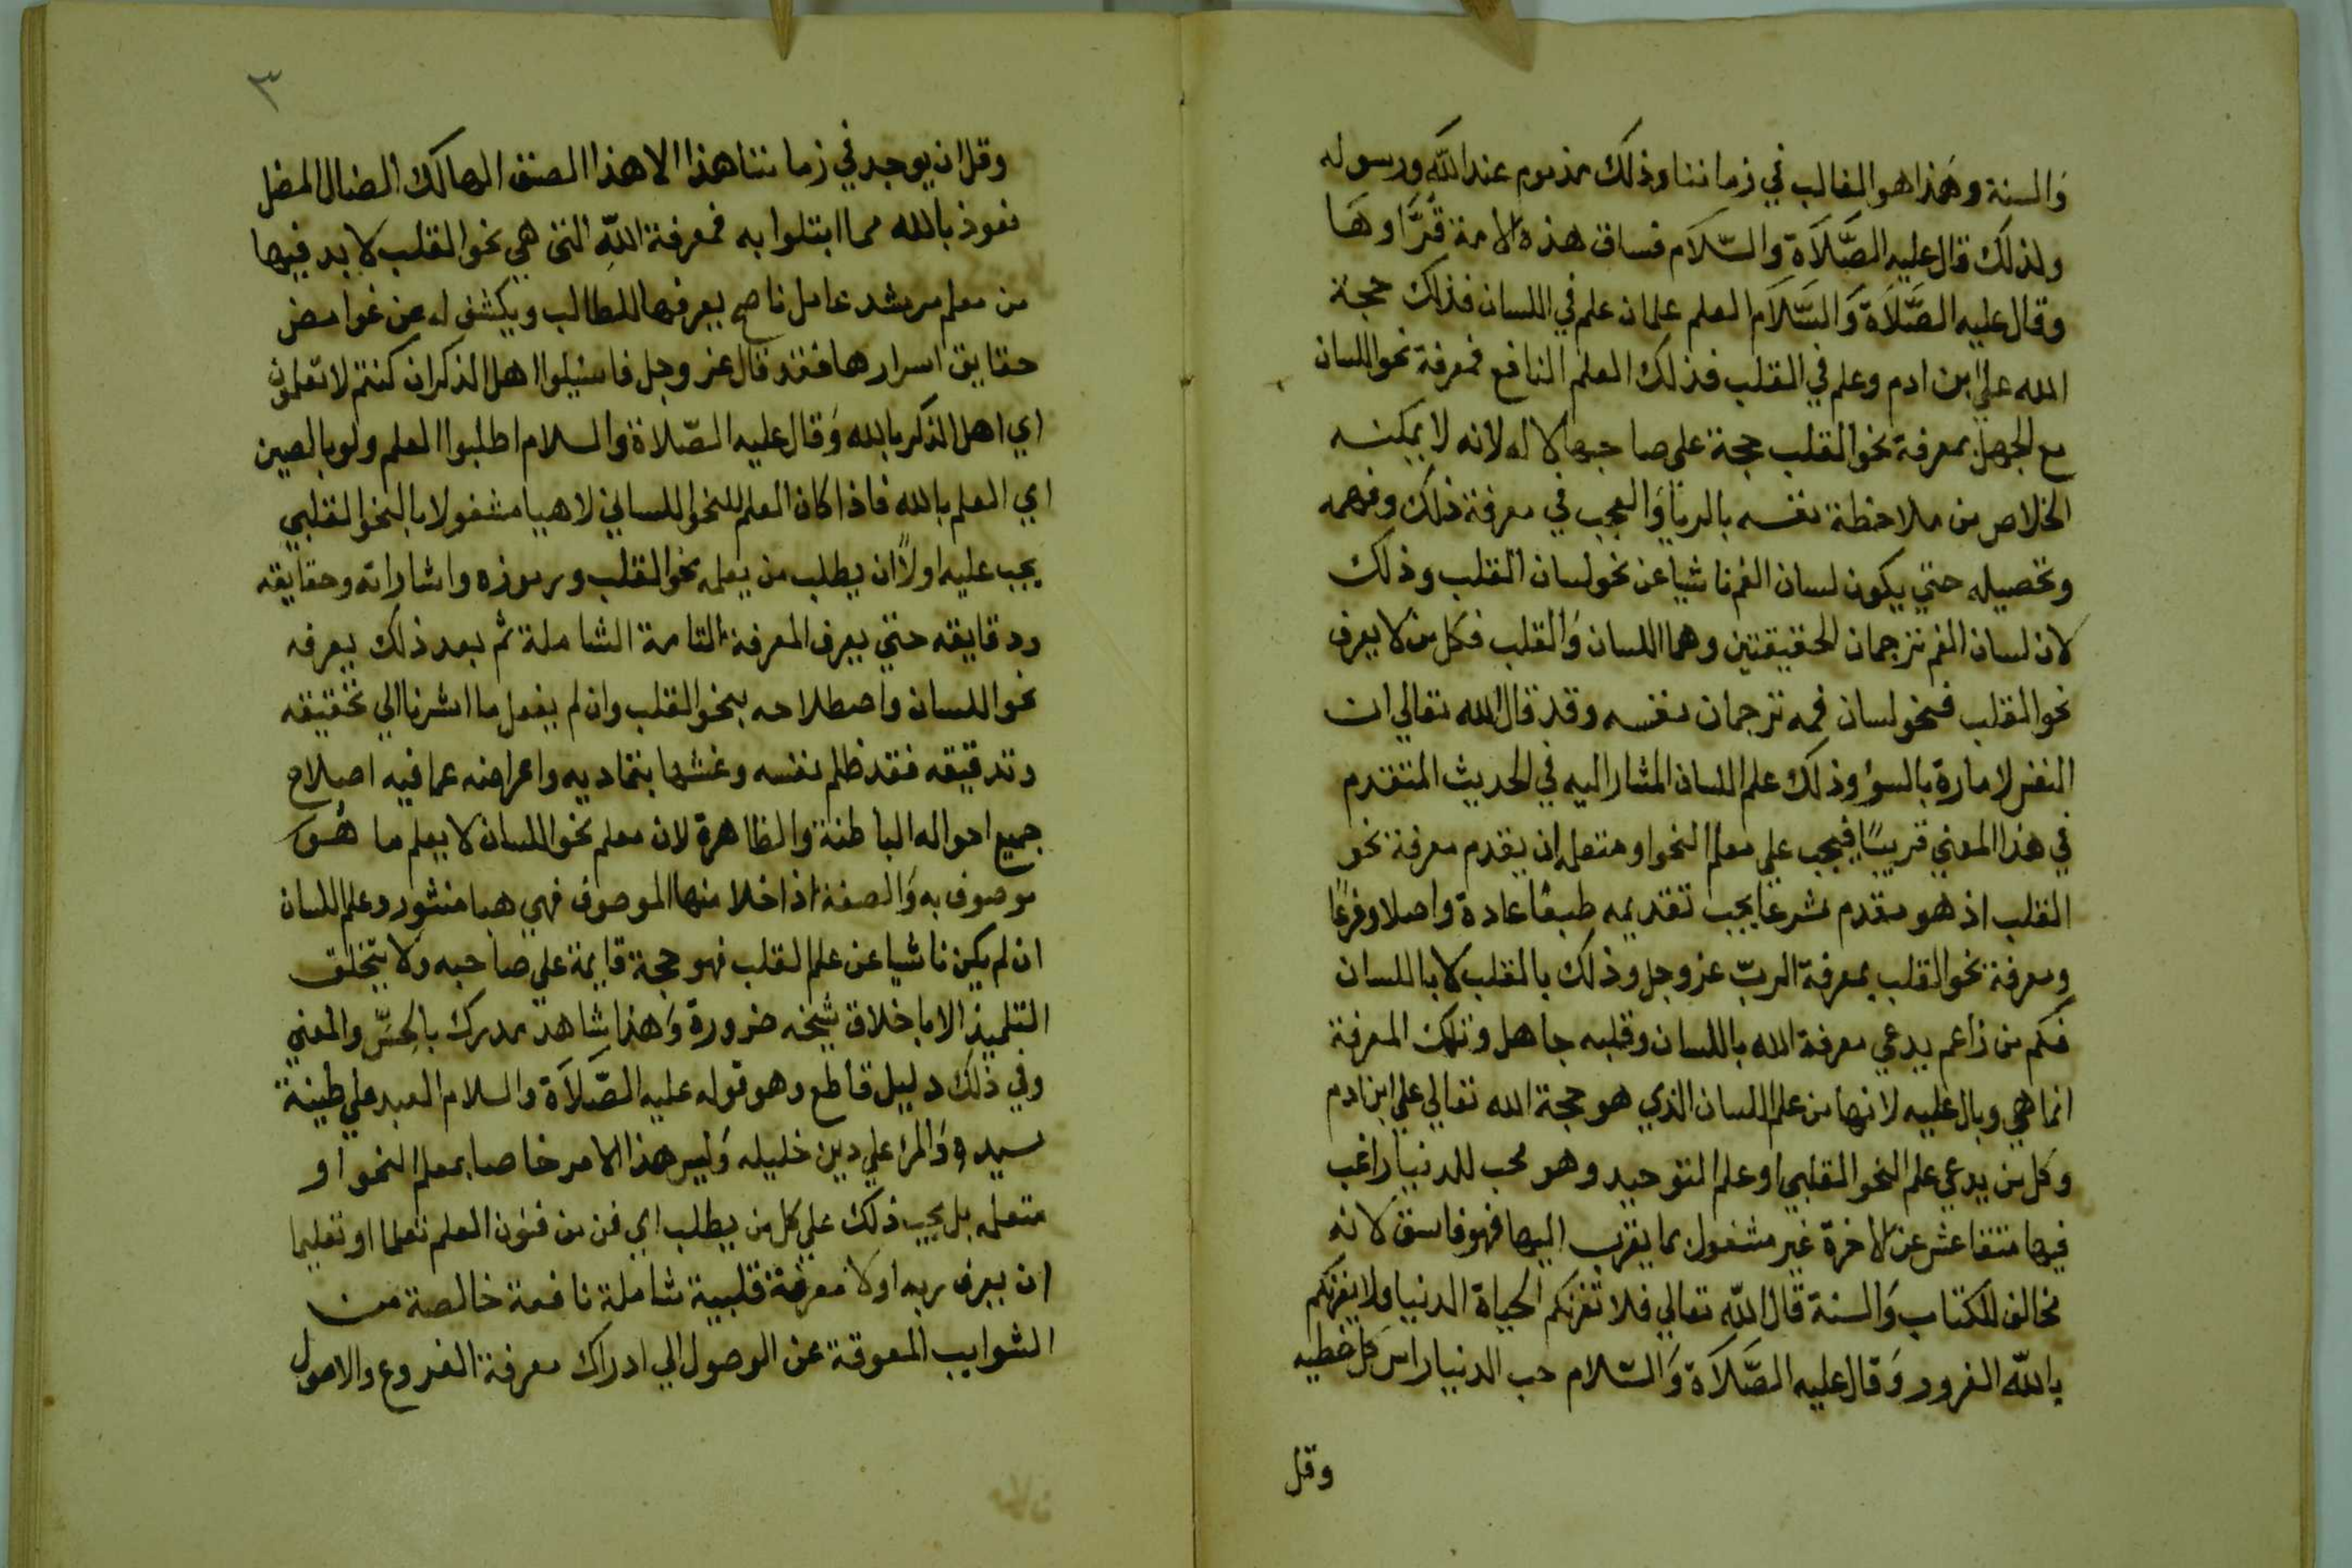 والسنة وهذا هو الغالب في زماننا وذلك مذموم عند الله ورسوله
ولذلك قال عليه الصَّلَاة والسّلَام فساق هذه الامة قُرَّاوهَا
وقال عليه الصَّلَاة وَالسَّلَام العلم علمان علم في اللسان فذلك حجة
الله علي ابن ادم وعلم في القلب فذلك العلم النافع فمعرفة نحو اللسان
مع الجهل بمعرفة نحو القلب حجة علي صاحبها لا له لانه لا يمكنه
الخلاص من ملاحظة نفسه بالريا وَالعجب في معرفة ذلك وفهمه
وتحصيله حتي يكون لسان الفم ناشيا عن نحو لسان القلب وذلك
لان لسان الفم ترجمان الحقيقتين وهما اللسان وَالقلب فكل من لا يعرف
نحو القلب فنحو لسان فمه ترجمان نفسه وقد قال الله تعالي ان
النفس لامارة بالسوٕ وذلك علم اللسان المشار اليه في الحديث المتقدم
في هذا المعني قريبًا فيجب علي معلم النحو او متعلمه ان يقدم معرفة نحو
القلب اذ هو مقدم شرعا يجب تقديمه طبعًا عادة واصلا وفرعًا
ومعرفة نحو القلب بمعرفة الربّ عز وجل وذلك بالقلب لا باللسان
فكم من زاعم يدعي معرفة الله باللسان وقلبه جاهل وتلك المعرفة
انما هي وبال عليه لانها من علم اللسان الذي هو حجة الله تعالي علي ابن ادم
وكل من يدعي علم النحو القلبي او علم التوحيد وهو محب للدنيا راغب
فيها متقاعس عن الاخرة غير مشغول بما يقرب اليها فهو فاسق لانه
مخالف للكتاب وَالسنة قال اللّه تعالي فلا تغرنكم الحياة الدنيا ولا يغرنكم
باللّه الغرور وَقال عليه الصَّلَاة وَالسّلام حب الدنيا راس كل خطيه
وقل
٣
وقل ان يوجد في زماننا هذا الا هذا الصنف الهالك الضال المضل
نعوذ بالله مما ابتلوا به فمعرفة اللّهِ التي هي نحو القلب لا بد فيها
من معلم مرشد عامل ناصح يعرفها للطالب ويكشف له عن غوامض
حقايق اسرارها فقد قال عز وجل فاسئلوا اهل الذكر ان كنتم لا تعلمون
اي اهل الذكر بالله وَقال عليه الصّلاة والسلام اطلبوا العلم ولو بالصين
اي العلم بالله فاذا كان المعلم للنحو اللساني لاهيا مشغولا بالنحو القلبي
يجب عليه اولاً ان يطلب من يعلمه نحو القلب ورموزه واشاراته وحقايقه
ودقايقه حتي يعرف المعرفة التامة الشاملة ثم بعد ذلك يعرفه
نحو اللسان واصطلاحه بنحو القلب وان لم يفعل ما اشرنا الي تحقيقه
وتدقيقه فقد ظلم نفسه وغشها بتماديه واعراضه عما فيه اصلاح
جميع احواله الباطنة والظاهرة لان معلم نحو اللسان لا يعلم ما هُو
موصوف به وَالصفة اذا خلا منها الموصوف فهي هبا منثور وعلم اللسان
ان لم يكن ناشيا عن علم القلب فهو حجة قايمة علي صاحبه ولا يتخلق
التلميذ الا باخلاق شيخه ضرورة وَهذا شاهد مدرك بالحسّ والمعني
وفي ذلك دليل قاطع وهو قوله عليه الصَّلَاَة والسلام العبد علي طينة
سيده وَالمرٕ علي دين خليله وَليس هذا الامر خاصا بمعلم النحو او
متعلمه بل يجب ذلك علي كل من يطلب اي فن من فنون العلم تعلما او تعليما
ان يعرف ربه اولا معرفة قلبية شاملة نافعة خالصة من
الشوايب المعوقة عن الوصول الي ادراك معرفة الفروع والاصول